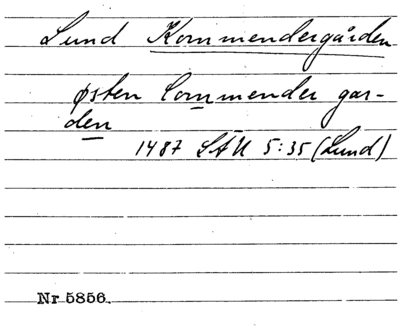 Lund Kommendergården
østen Commender gar-
den
1487 LÄU 5:35 (Lund)
Nr 5856.